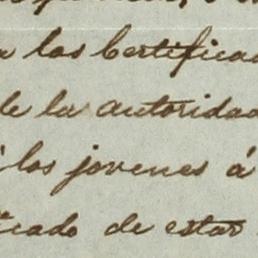 a las Certificad
de la autoridad
los jovenes á
ficado de estar